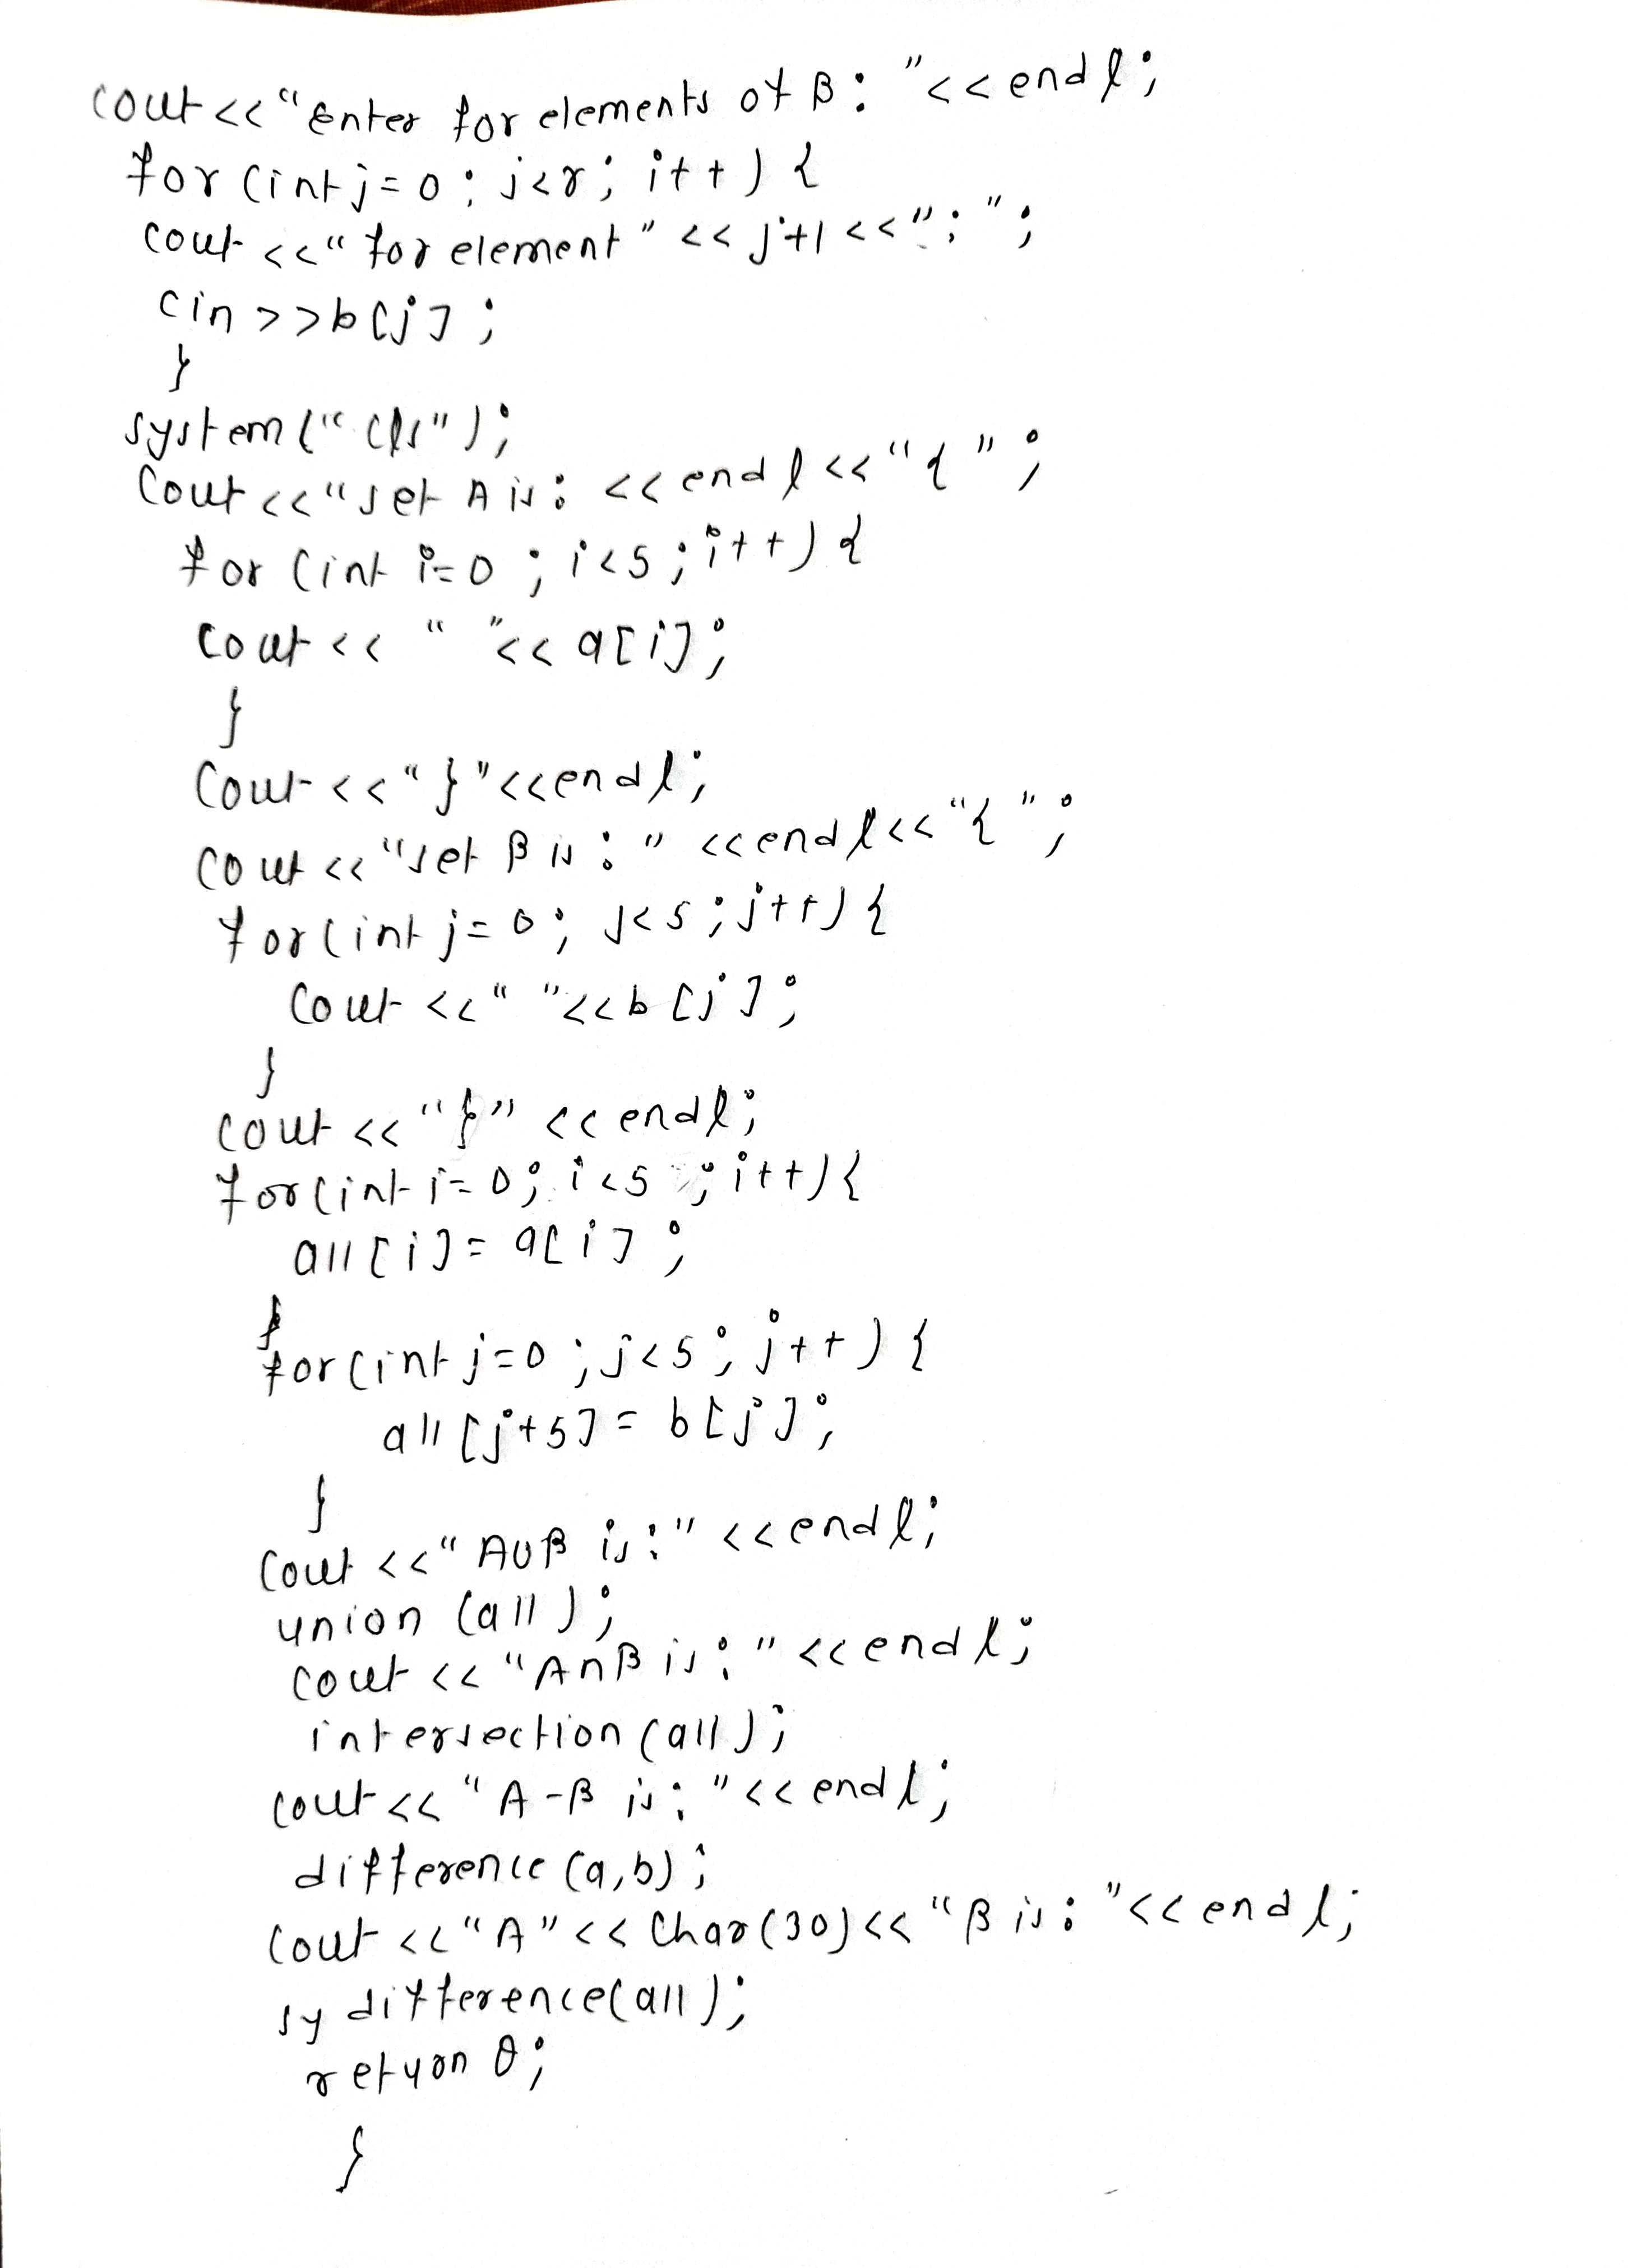 cout<<"Enter for elements of B: "<<endl;
for (int j=0; j<r; i++) {
cout <<"for element" << j+1 <<": ";
cin >>b[j];
}
system("cls");
Cout<<"set A is: <<endl<<"{ ";
for (int i=0; i<5; i++) {
cout << " "<< a[i];
}
Cout <<"}"<<endl;
cout <<"set B is: " <<endl<<"{ ";
for(int j=0; j<5; j++) {
Cout <<" "<<b[j];
}
cout <<"}" <<endl;
for(int i=0; i<5; i++){
all[i]= a[i];
}
for(int j=0; j<5; j++) {
all [j+5] = b[j];
}
Cout <<"AUB is:" <<endl;
union (all);
cout <<"AnB is: "<<endl;
intersection (all);
cout<< "A-B is: "<<endl;
difference (a,b);
cout <<"A"<< Char(30)<<"B is: "<<endl;
sy difference(all);
return 0;
}